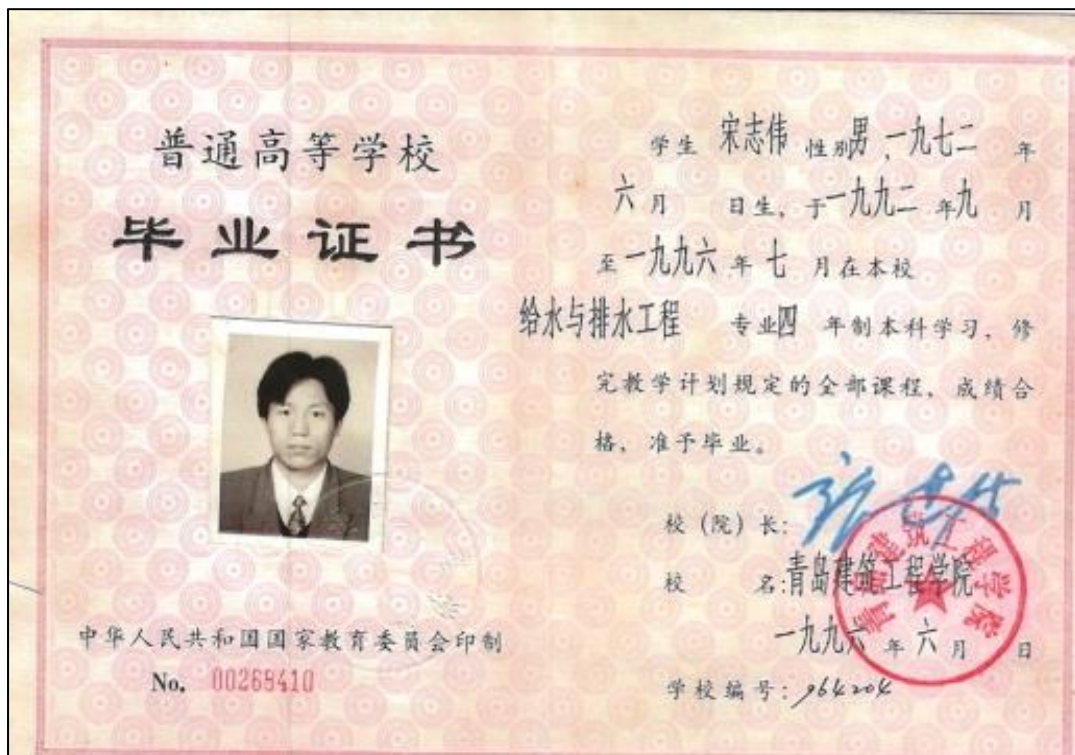 普通高等学校
毕业证书
中华人民共和国国家教育委员会印制
No. 00268410
学生 宋志伟 性别男,一九七二 年
六月 日生,于一九九二年九 月
至一九九六年七 月在本校
给水与排水工程 专业四 年制本科学习,修
完教学计划规定的全部课程,成绩合
格,准予毕业。
校(院)长:
校 名:青岛建筑工程学院
青岛建筑工程学院
一九九六年六月 日
学校编号:964204